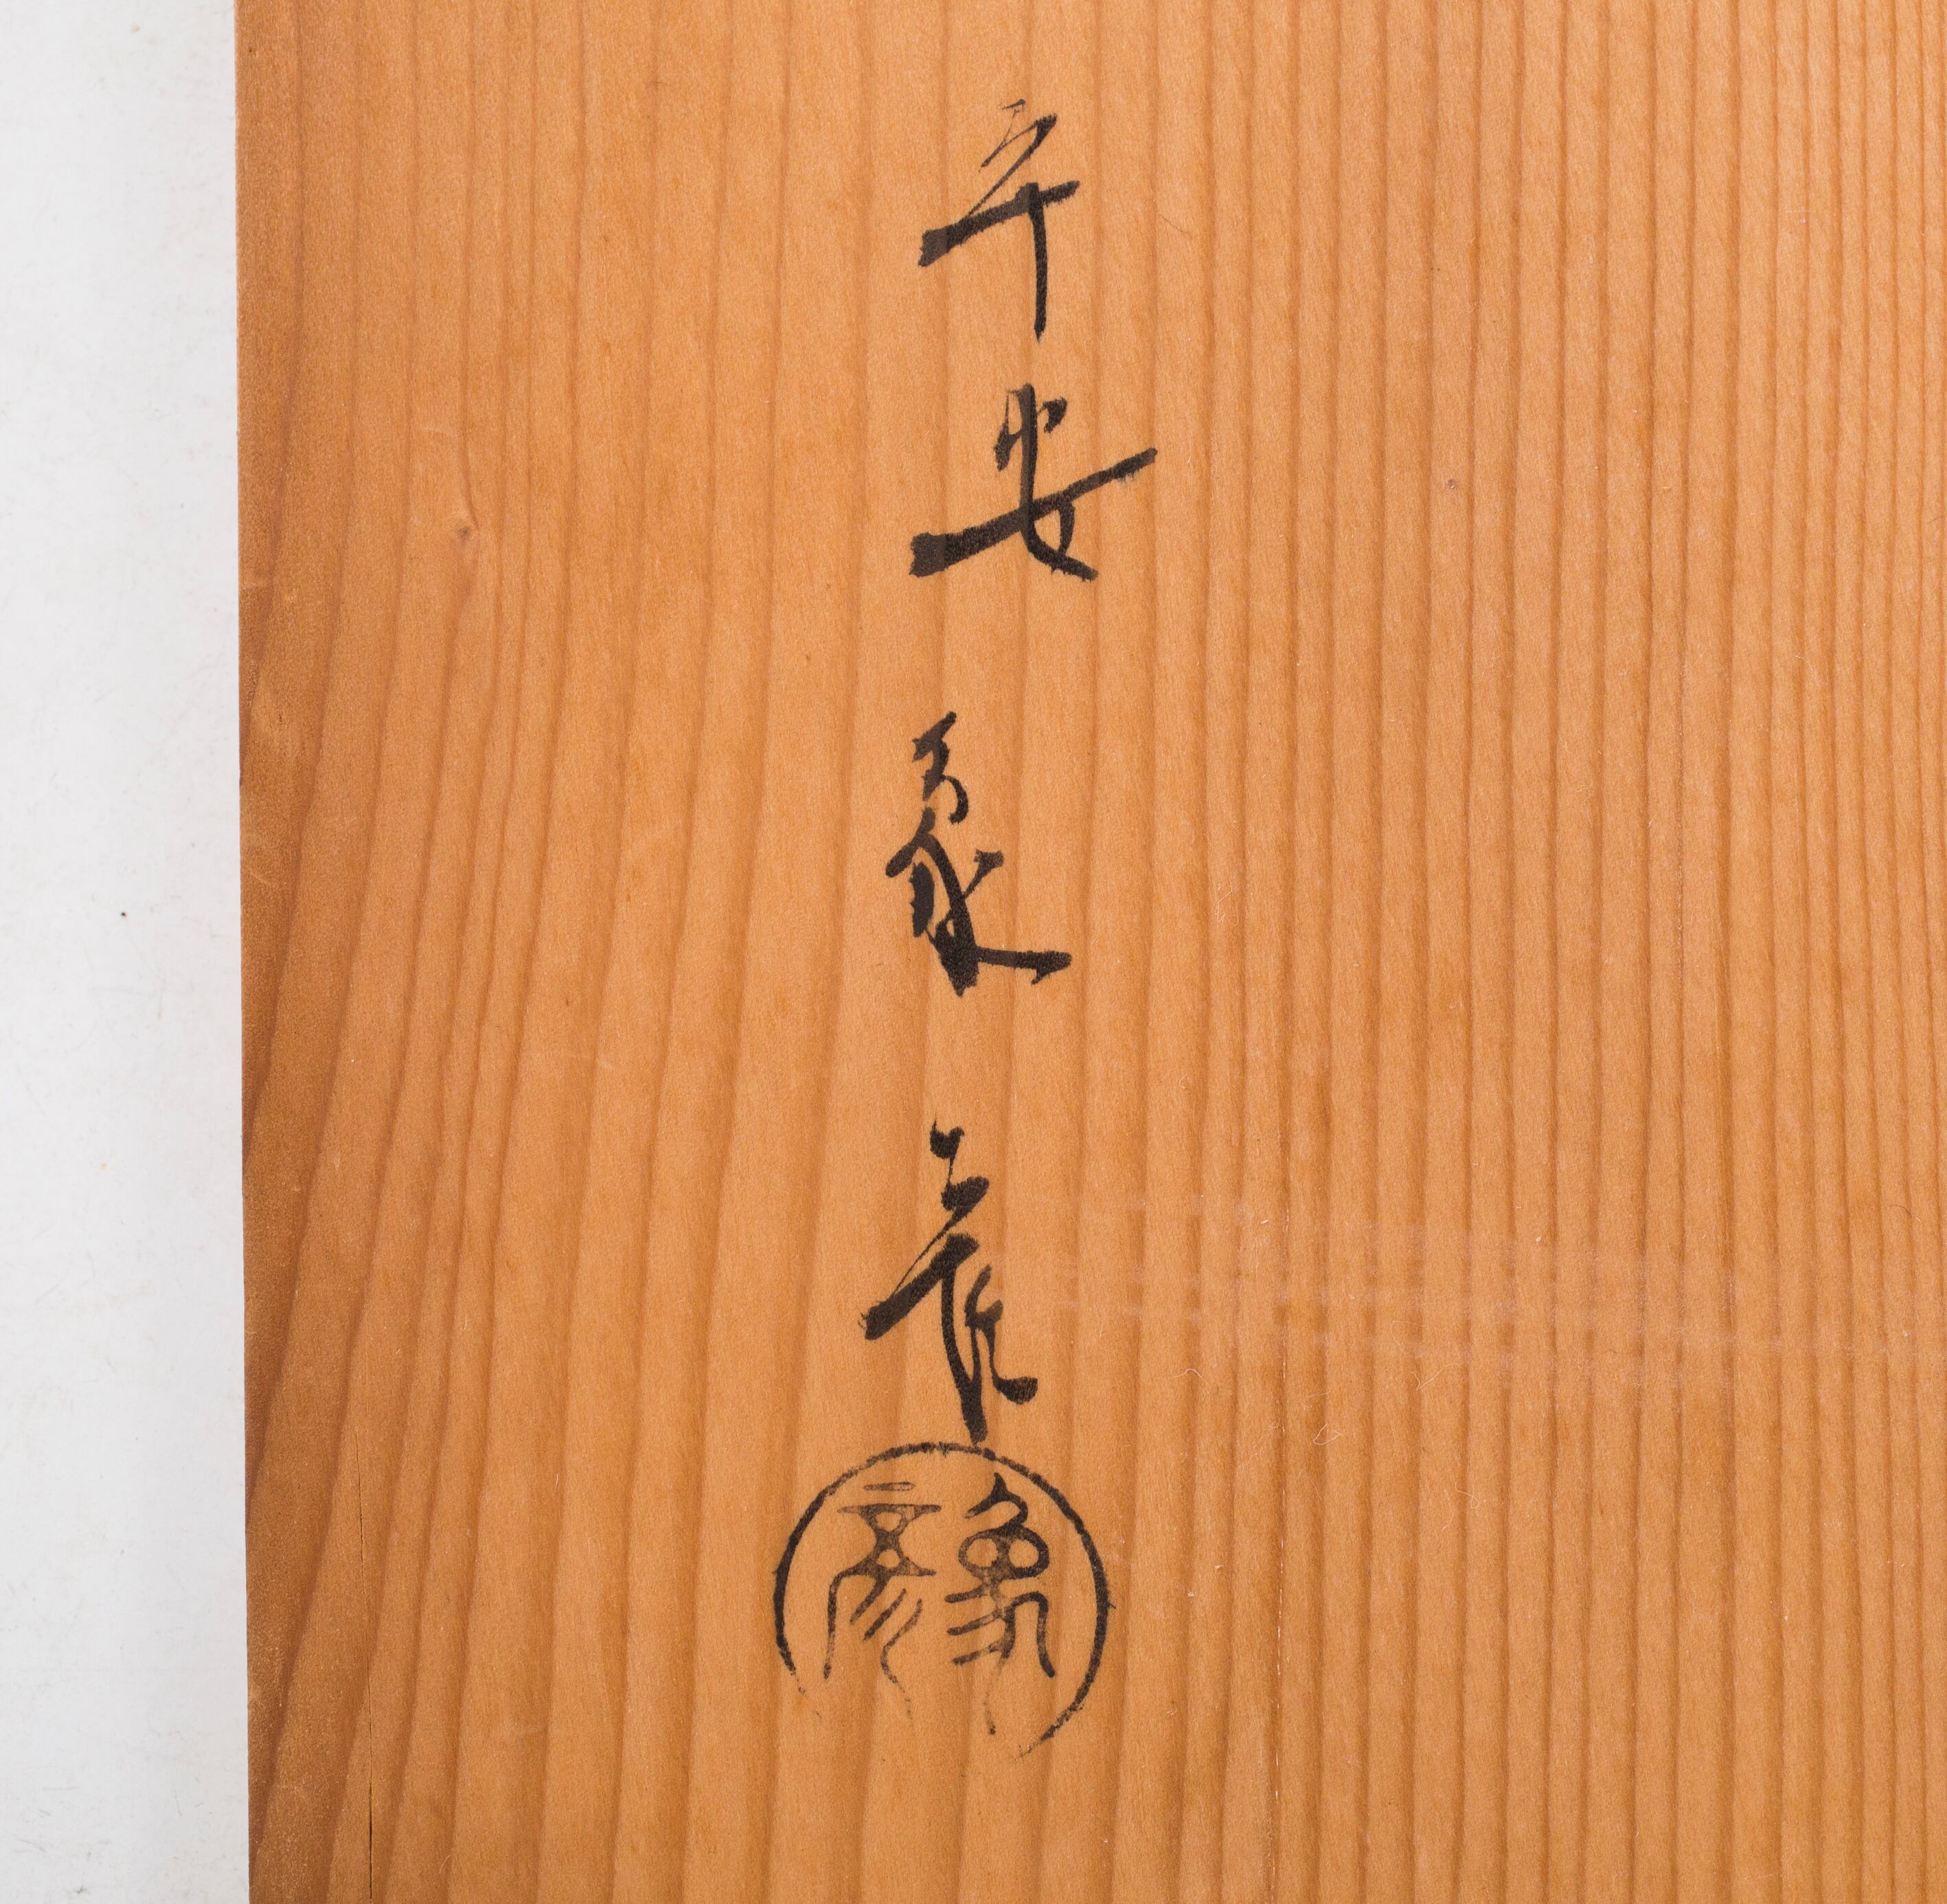 平安象彦
象彦